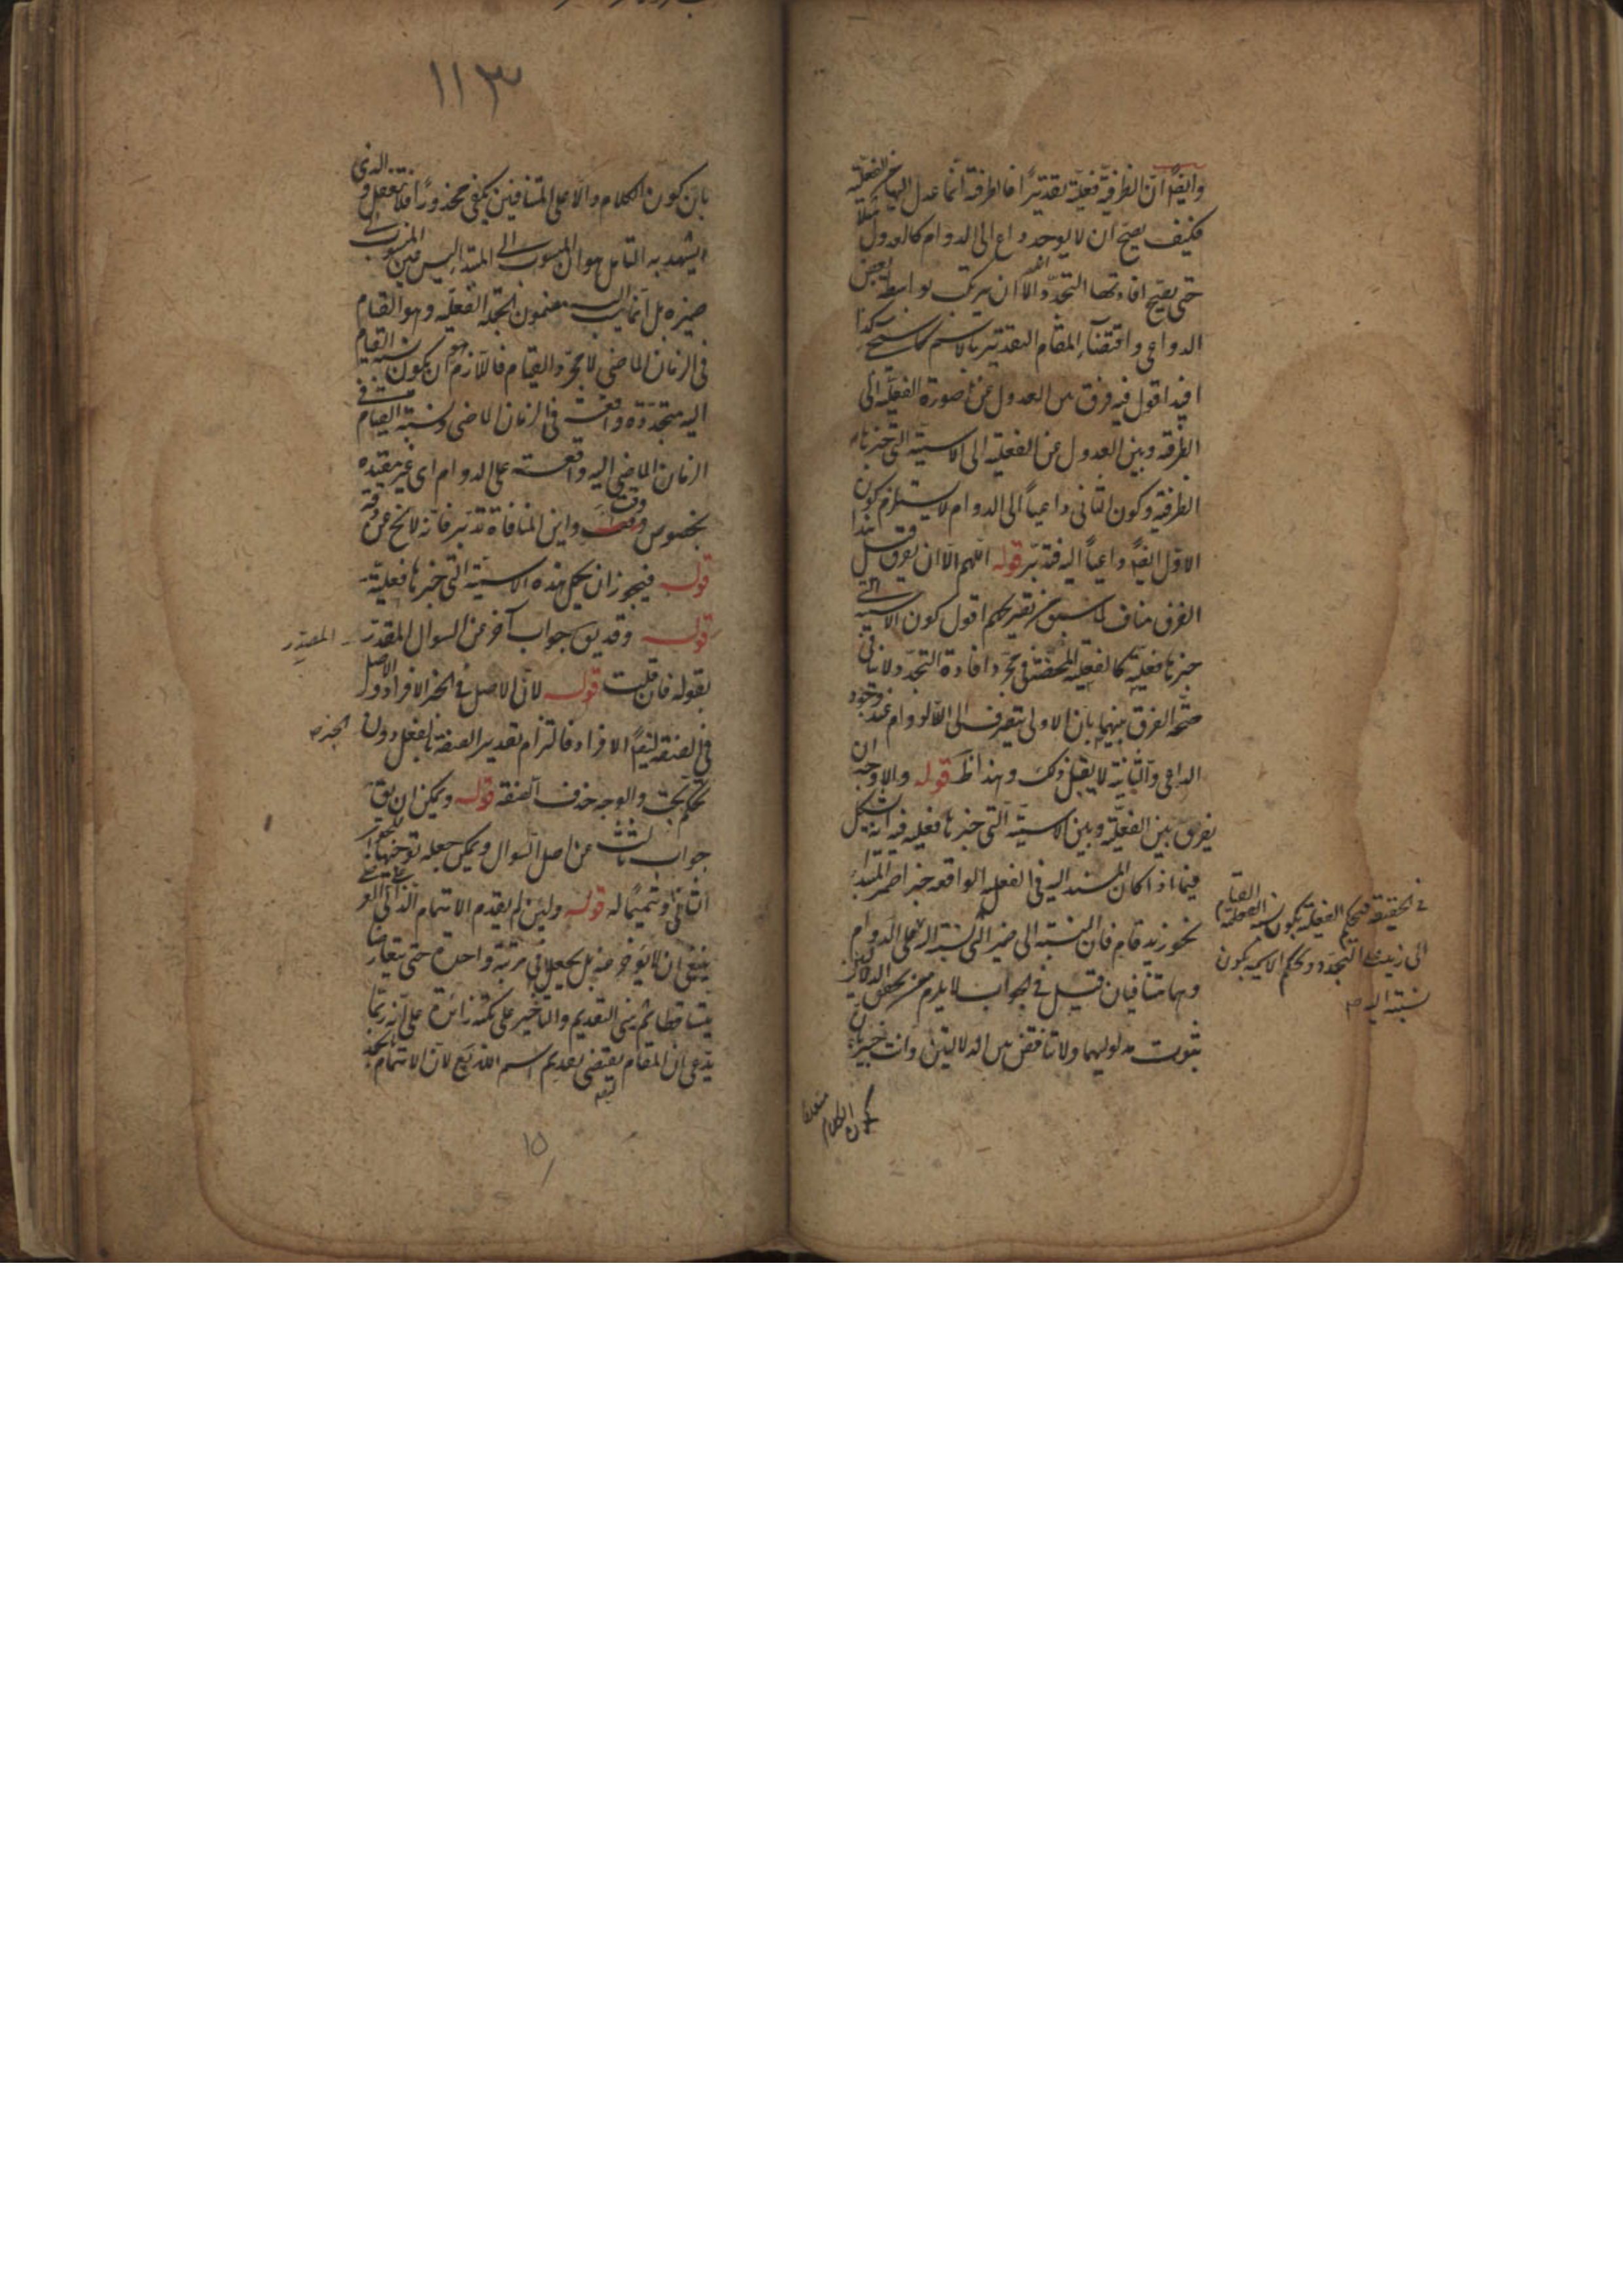 وايضًا ان الظرفية فعلية تقديرًا فالظرفية انما عدل اليها عن الفعلية
فكيف يصح ان لا يوجد داع الى الدوام كالعدول مثلا
حتى يصح افادتها التجدد الا ان يرتكب بواسطة بعض
الدواعي واقتضاء المقام التقدير بالاسم كذا
افيد اقول فيه فرق بين العدول عن صورة الفعلية الى
الظرفية وبين العدول عن الفعلية الى الاسمية التي خبرها
الظرفية وكون الثاني داعيًا الى الدوام لا يستلزم كون
الاول ايضًا داعيًا اليه فتدبر قوله اللهم الا ان يفرق قيل هذا
الفرق مناف لما سبق من تقريركم اقول كون الاسمية التي
خبرها فعلية كالفعلية المحضة في مجرد افادة التجدد لا ينافي
صحة الفرق بينهما بان الاولى ينصرف الى الدوام عند وجود
الداعي والثانية لا يقبل ذلك وهذا ظ قوله والاوجه ان
يفرق بين الفعلية وبين الاسمية التي خبرها فعلية فيه انه يشكل
فيما اذا كان المسند اليه في الفعلية الواقعة خبرا ضمير المبتدا
نحو زيد قام فان النسبة الى ضمير الشيء نسبة اليه على الدوام
وهما متنافيان قيل في الجواب لا يلزم من تحقق الدلالتين
ثبوت مدلوليهما ولا تناقض بين الدلالتين وانت خبير بان
في الحقيقة فبحكم الفعلية يكون نسبة القيام
الى زيد على التجدد وبحكم الاسمية يكون
نسبته اليه صـ
١١٣
بان كون الكلام دالا على المتنافيين يكفي محذورًا فلا تغفل و الذي
يشهد به التامل هو ان المنسوب الى المبتدا ليس عين المنسوب الى
ضميره بل انما نسب اليه مضمون الجملة الفعلية وهو القيام
في الزمان الماضي لا مجرد القيام فاللازم هو ان يكون نسبة القيام
اليه متجددة واقعة في الزمان الماضي ونسبة القيام في
الزمان الماضي اليه واقعة على الدوام اي غير مقيدة
بخصوص وقت واين المنافاة تدبر فانه لا يخ عن دقة
قوله فيجوز ان يحمل هذه الاسمية التي خبرها فعلية
قوله وقد يق جواب آخر عن السوال المقدر المصدر
بقوله فان قلت قوله لان الاصل في الخبر الافراد والاصل
في الصفة ايضًا الافراد فالتزام تقدير الصفة بالفعل دون الخبر صـ
تحكم بحت والوجه حذف الصفة قوله ويمكن ان يق
جواب ثالث عن اصل السوال ويمكن جعله توجيها للجواب
الثاني وتتميمًا له قوله ولئن لم يقدم الاهتمام الذاتي
ينبغي ان لا يؤخر عنه بل يجعلا في مرتبة واحدة حتى يتعارضا
يتساقطا ثم يبنى التقديم والتاخير على نكتة زائدة على انه ربما
يدعى ان المقام يقتضي تقديم اسم الله تع لان الاهتمام
١٥